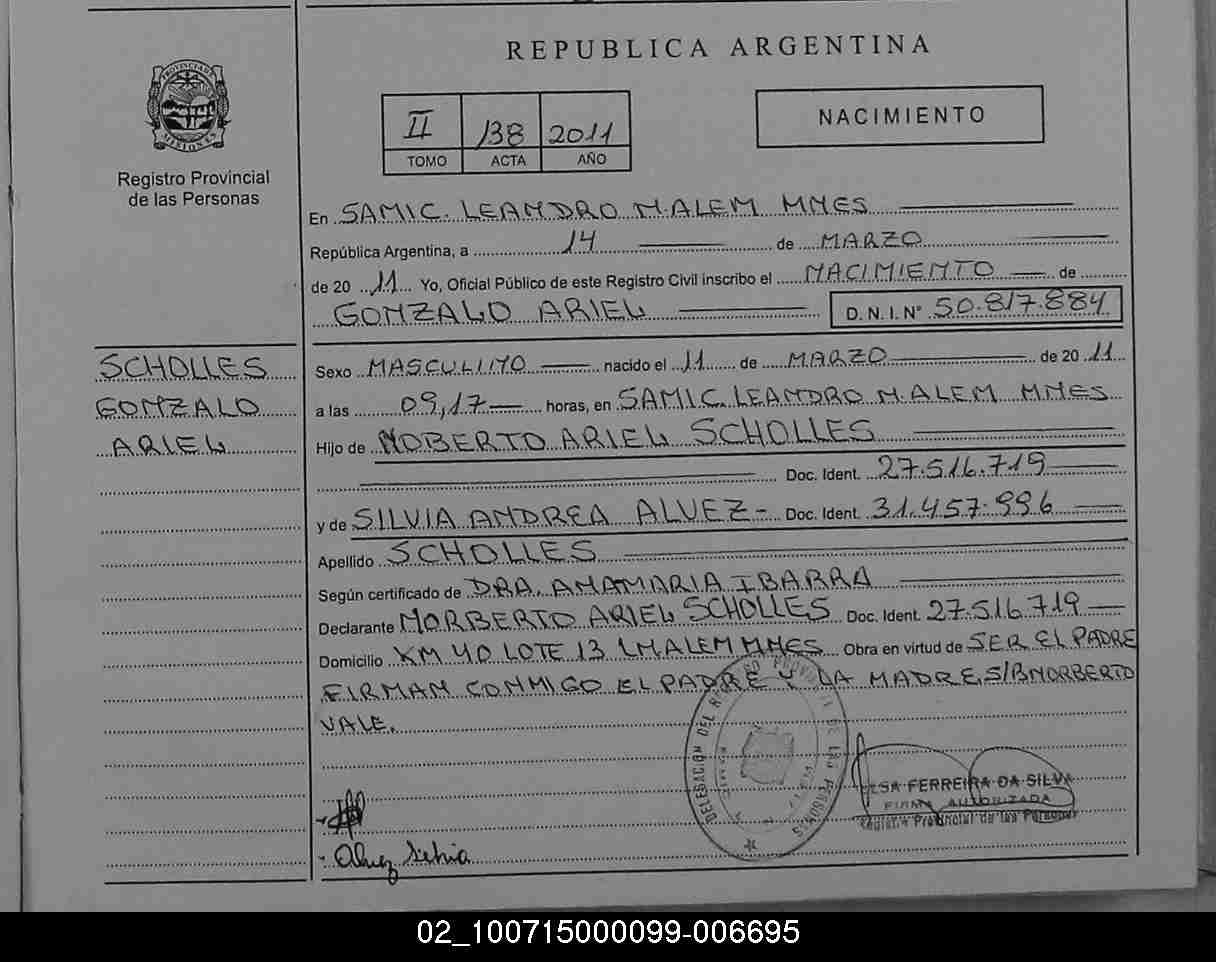 REPUBLICA ARGENTINA
PROVINCIA DE MISIONES
Registro Provincial
de las Personas
II 138 2011
TOMO ACTA AÑO
NACIMIENTO
En SAMIC. LEANDRO N. ALEM MNES
República Argentina, a 14 de MARZO
de 20 11 Yo, Oficial Público de este Registro Civil inscribo el NACIMIENTO de
GONZALO ARIEL D. N. I. N° 50.817.884
SCHOLLES
GONZALO
ARIEL
Sexo MASCULINO nacido el 11 de MARZO de 20 11
a las 09,17 horas, en SAMIC. LEANDRO N. ALEM MNES
Hijo de NOBERTO ARIEL SCHOLLES
Doc. Ident. 27.516.719
y de SILVIA ANDREA ALVEZ - Doc. Ident. 31.457.996
Apellido SCHOLLES
Según certificado de DRA. ANAMARIA IBARRA
Declarante NORBERTO ARIEL SCHOLLES Doc. Ident. 27.516.719
Domicilio KM 40 LOTE 13 L.N.ALEM MNES Obra en virtud de SER EL PADRE
FIRMAN CONMIGO EL PADRE Y LA MADRE, S/B NORBERTO
VALE.
DELEGACION DEL REGISTRO PROVINCIAL DE LAS PERSONAS
ELSA FERREIRA DA SILVA
FIRMA AUTORIZADA
Registro Provincial de las Personas
Alvez Silvia
02_100715000099-006695